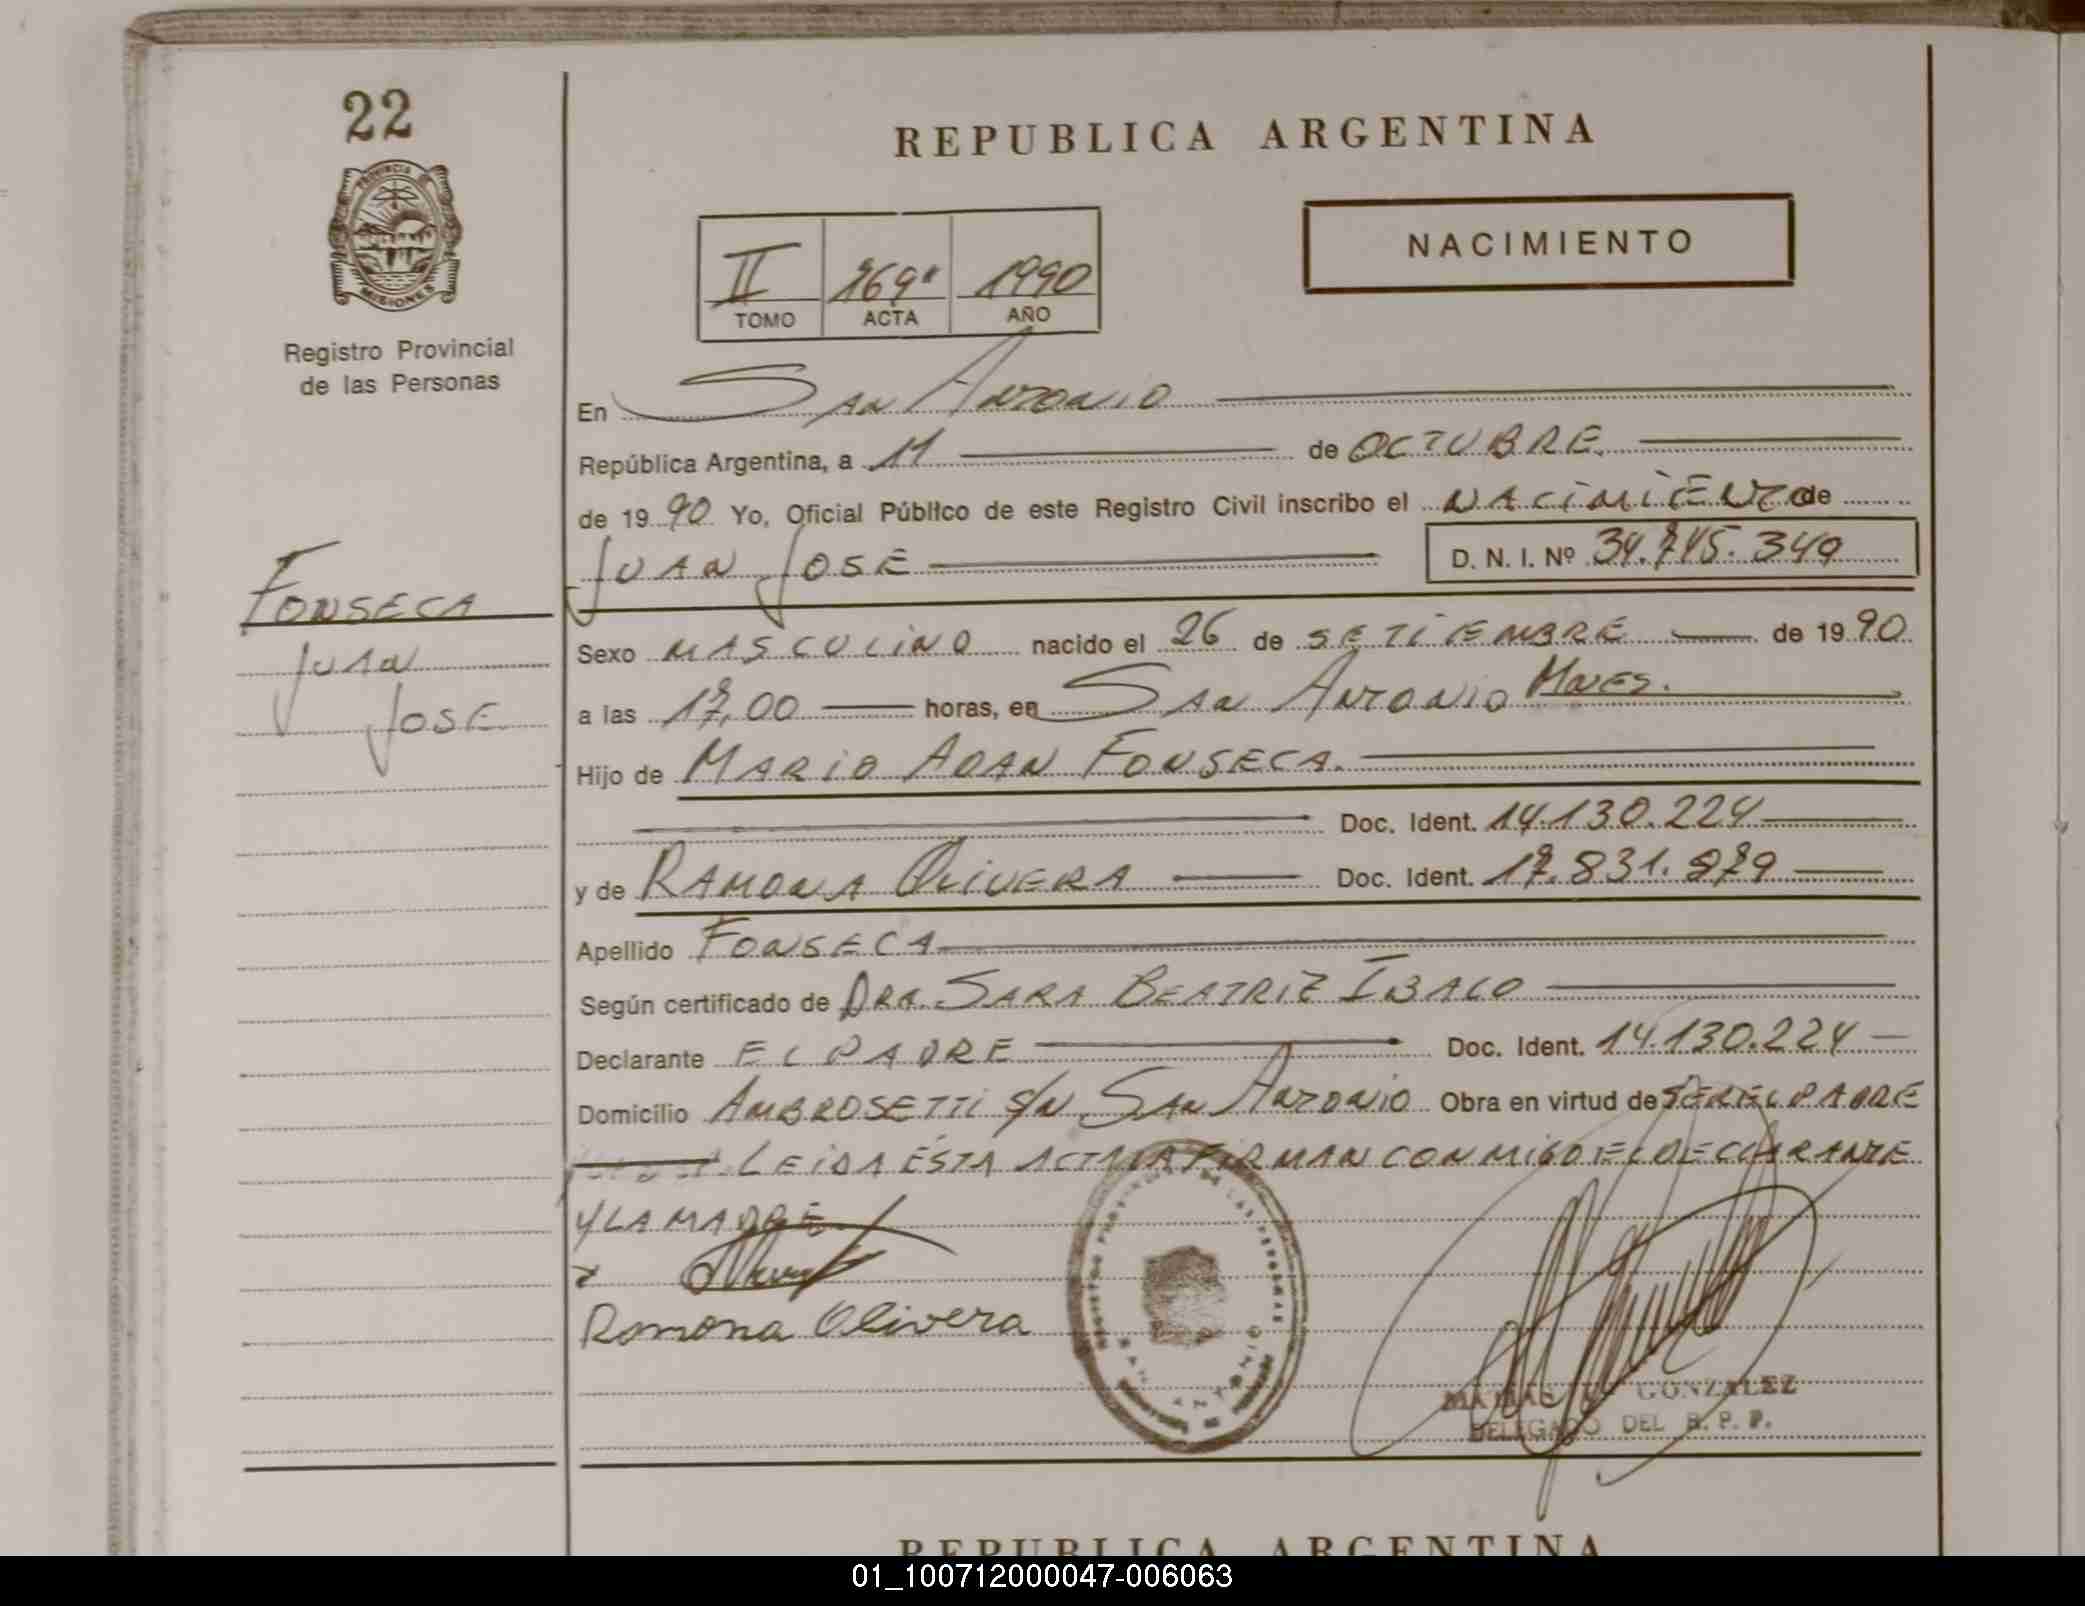 22
PROVINCIA
MISIONES
Registro Provincial
de las Personas
REPUBLICA ARGENTINA
NACIMIENTO
II 169" 1990
TOMO ACTA AÑO
En SAN ANTONIO
República Argentina, a 11 de OCTUBRE.
de 19 90 Yo, Oficial Público de este Registro Civil inscribo el NACIMIENTO de
JUAN JOSE D. N. I. Nº 34.745.349
FONSECA
JUAN
JOSE
Sexo MASCULINO nacido el 26 de SETIEMBRE de 19 90
a las 17,00 horas, en SAN ANTONIO MNES.
Hijo de MARIO ADAN FONSECA.
Doc. Ident. 14.130.224
y de RAMONA OLIVERA Doc. Ident. 17.831.979
Apellido FONSECA
Según certificado de DRA. SARA BEATRIZ IBALO
Declarante EL PADRE Doc. Ident. 14.130.224
Domicilio AMBROSETTI S/N SAN ANTONIO Obra en virtud de SER EL PADRE
LEIDA ÉSTA ACTA LA FIRMAN CONMIGO EL DECLARANTE
Y LA MADRE
Ramona Olivera
GONZALEZ
DELEGADO DEL R. P. P.
REPUBLICA ARGENTINA
01_100712000047-006063